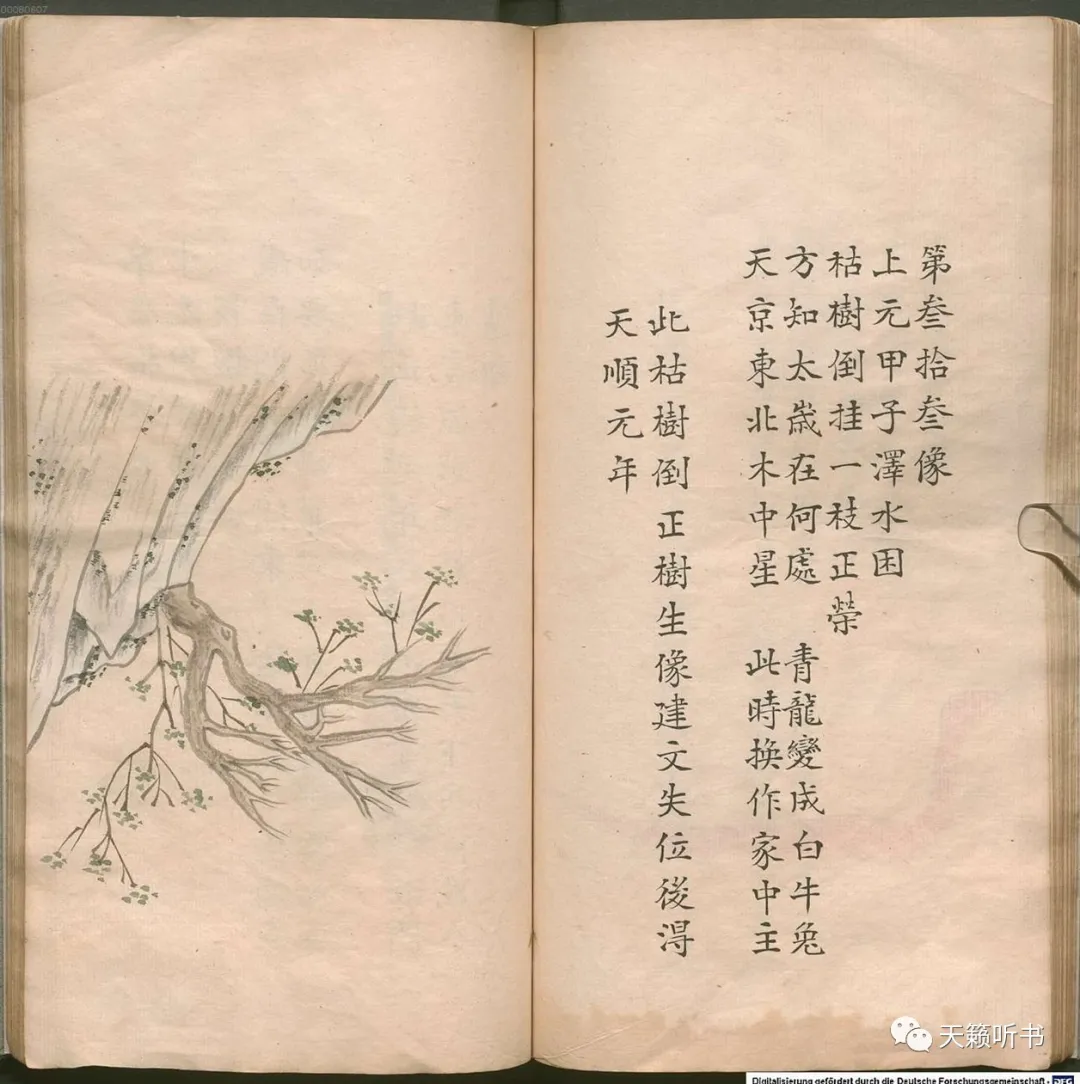 00080607
第叁拾叁像
上元甲子澤水困
枯樹倒挂一枝正榮
方知太歲在何處 青龍變成白牛兔
天京東北木中星 此時换作家中主
此枯樹倒正樹生像建文失位後淂
天順元年
天籁听书
Digitalisierung gefördert durch die Deutsche Forschungsgemeinschaft - DFG